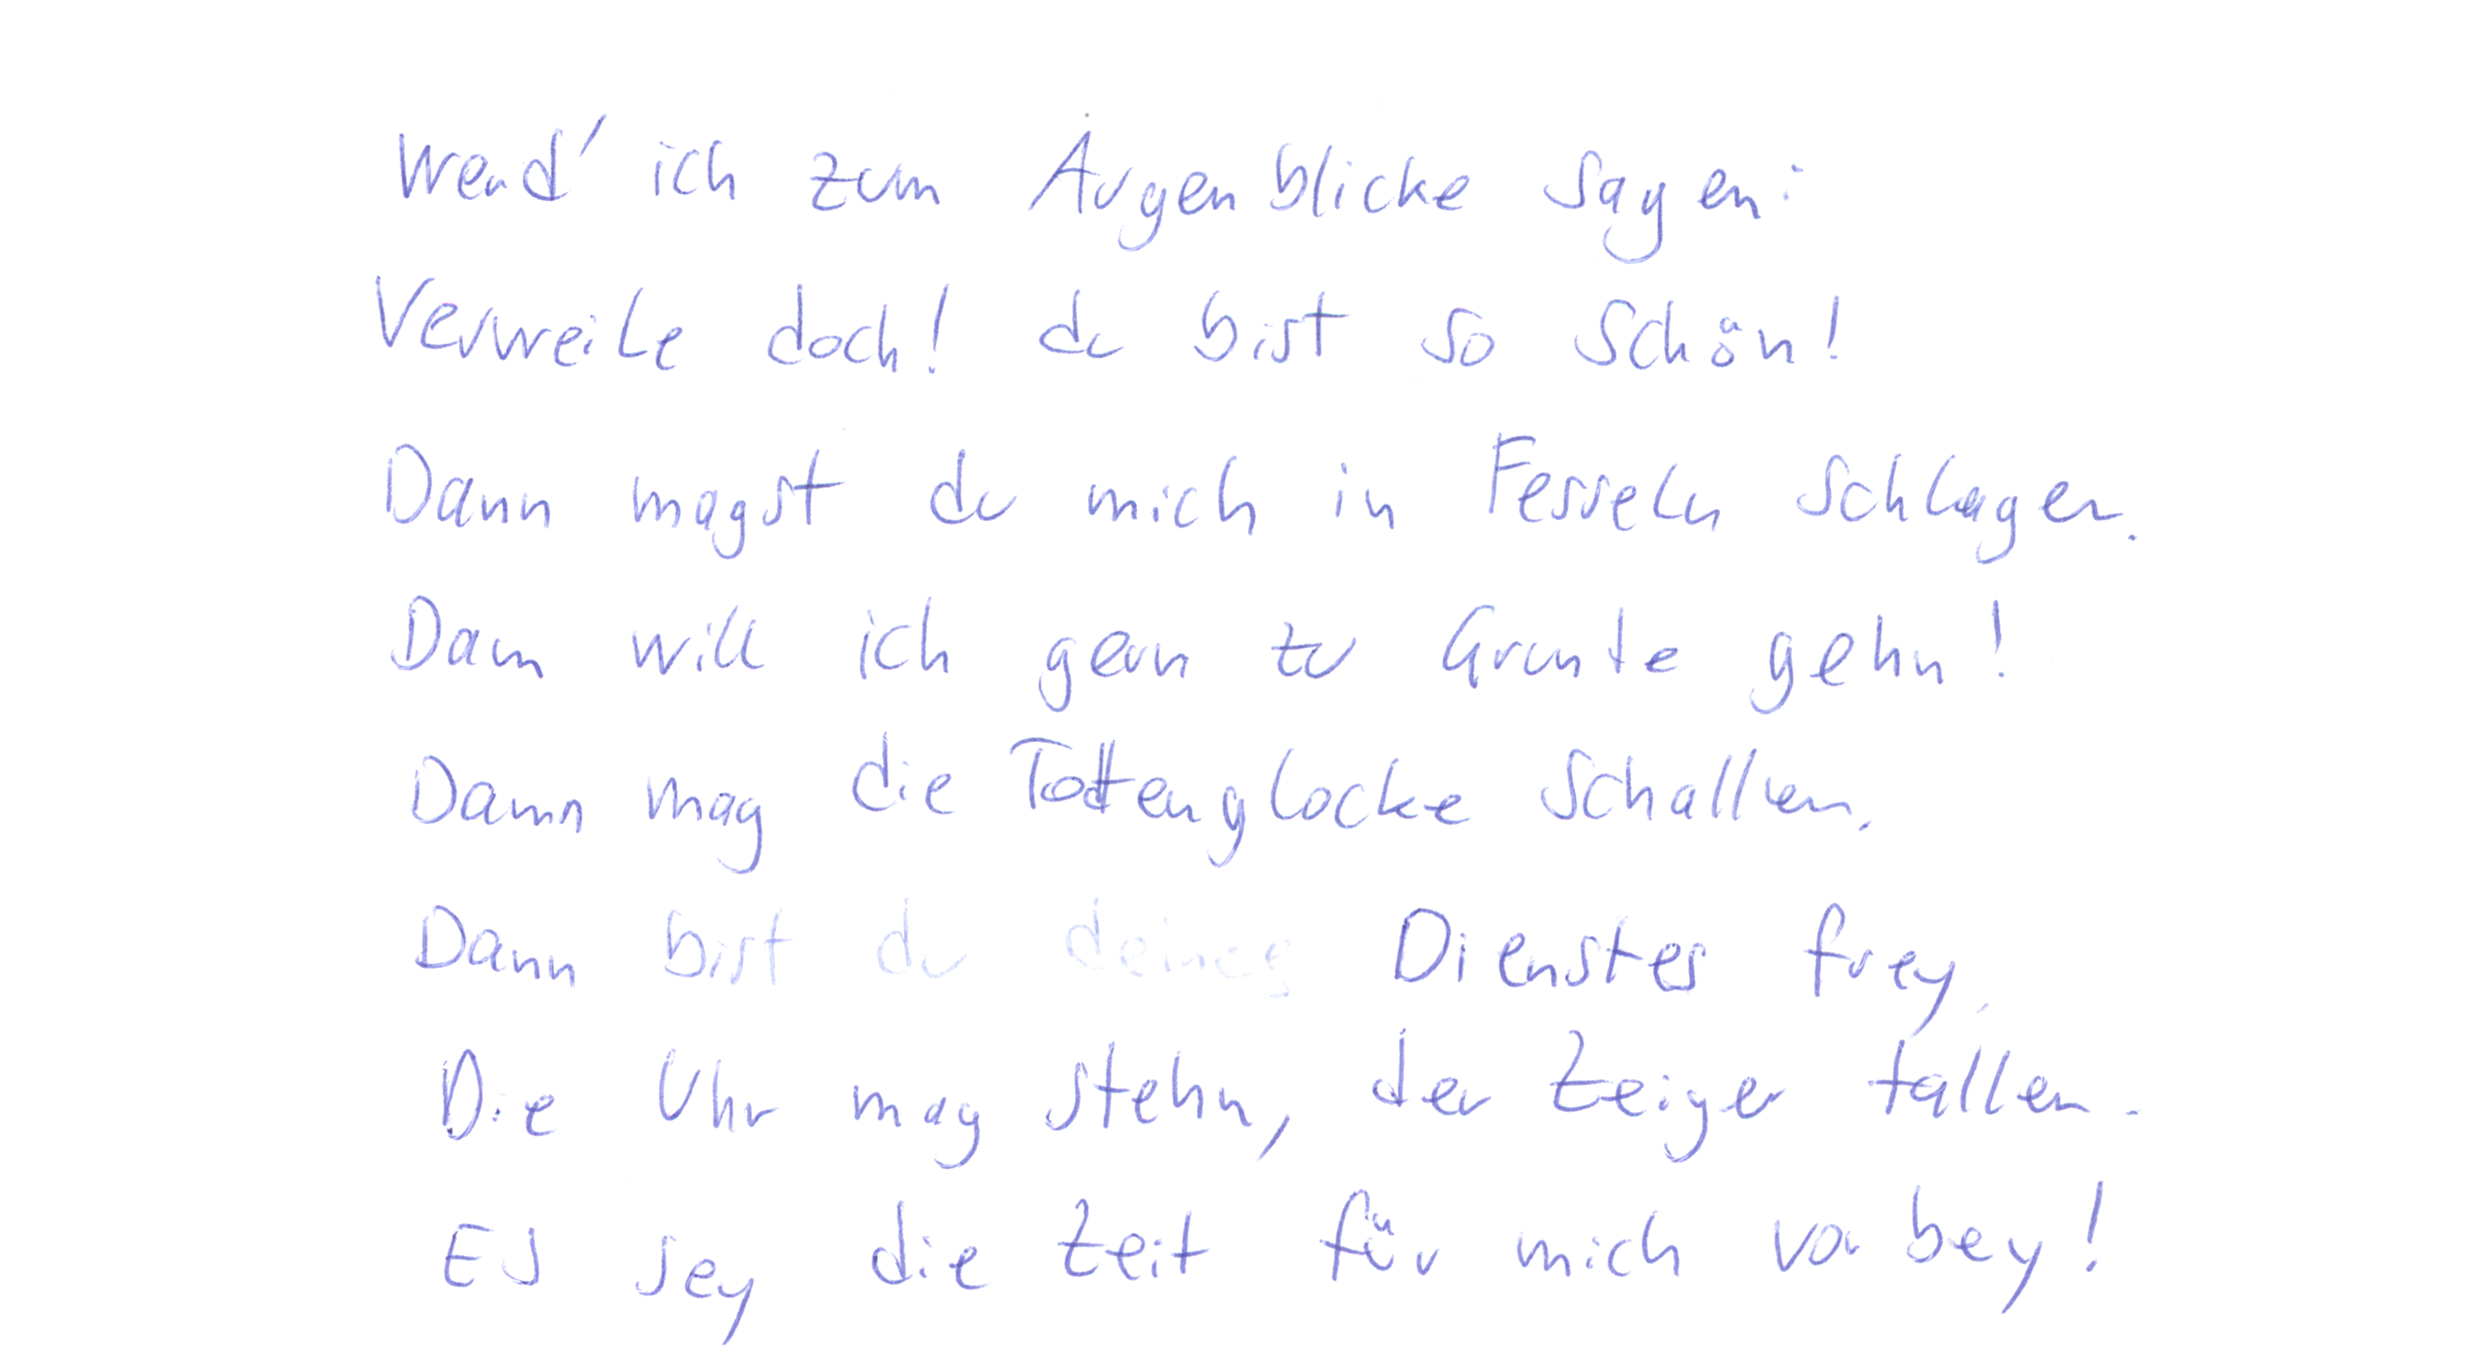 Werd' ich zum Augenblicke sagen:
Verweile doch! du bist so schön!
Dann magst du mich in Fesseln schlagen.
Dann will ich gern zu Grunte gehn!
Dann mag die Tottenglocke schallen.
Dann bist du deines Dienstes frey,
Die Uhr mag stehn, der Zeiger fallen.
Es sey die Zeit für mich vorbey!